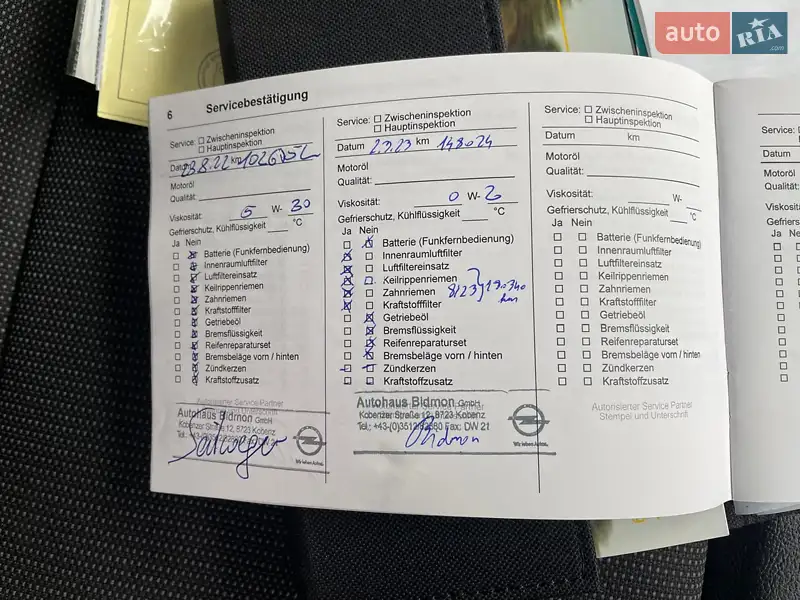 auto RIA .com
6
Servicebestätigung
Service: ☐ Zwischeninspektion
☐ Hauptinspektion
Datum 23.8.22 km
Motoröl
Qualität:
Viskosität: 5 W- 30
Gefrierschutz, Kühlflüssigkeit °C
Ja Nein
Batterie (Funkfernbedienung)
Innenraumluftfilter
Luftfiltereinsatz
Keilrippenriemen
Zahnriemen
Kraftstofffilter
Getriebeöl
Bremsflüssigkeit
Reifenreparaturset
Bremsbeläge vorn / hinten
Zündkerzen
Kraftstoffzusatz
Autorisierter Service Partner
Autohaus Bidmon GmbH
Kobenzer Straße 12, 8723 Kobenz
Wir leben Autos.
Service: ☐ Zwischeninspektion
☐ Hauptinspektion
Datum 2.3.23 km 148024
Motoröl
Qualität:
Viskosität: 0 W- 20
Gefrierschutz, Kühlflüssigkeit °C
Ja Nein
Batterie (Funkfernbedienung)
Innenraumluftfilter
Luftfiltereinsatz
Keilrippenriemen
Zahnriemen
Kraftstofffilter
Getriebeöl
Bremsflüssigkeit
Reifenreparaturset
Bremsbeläge vorn / hinten
Zündkerzen
Kraftstoffzusatz
Autohaus Bidmon GmbH
Kobenzer Straße 12, 8723 Kobenz
Bidmon
Wir leben Autos.
Service: ☐ Zwischeninspektion
☐ Hauptinspektion
Datum km
Motoröl
Qualität:
Viskosität: W-
Gefrierschutz, Kühlflüssigkeit °C
Ja Nein
Batterie (Funkfernbedienung)
Innenraumluftfilter
Luftfiltereinsatz
Keilrippenriemen
Zahnriemen
Kraftstofffilter
Getriebeöl
Bremsflüssigkeit
Reifenreparaturset
Bremsbeläge vorn / hinten
Zündkerzen
Kraftstoffzusatz
Autorisierter Service Partner
Stempel und Unterschrift
Service:
Datum
Motoröl
Qualität:
Ja Nein